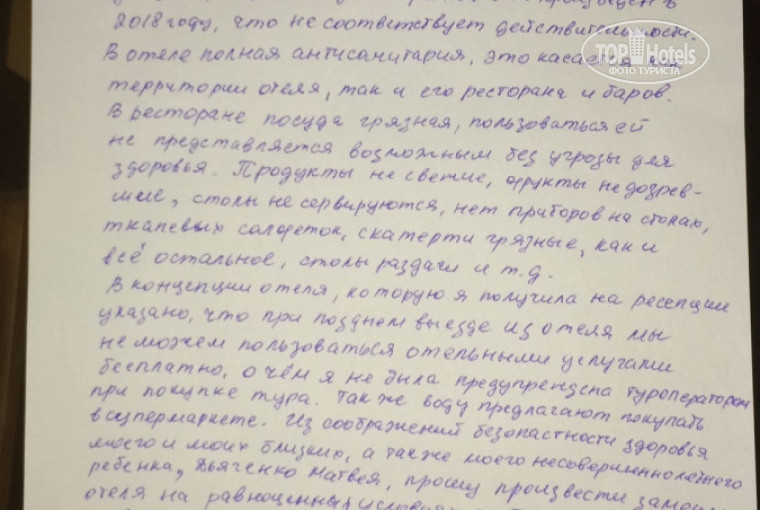 2018 году, что не соответствует действительности.
В отеле полная антисанитария, это касается как
территории отеля, так и его ресторана и баров.
В ресторане посуда грязная, пользоваться ей
не представляется возможным без угрозы для
здоровья. Продукты не свежие, фрукты не дозрев-
шие, столы не сервируются, нет приборов на столах,
тканевых салфеток, скатерти грязные, как и
всё остальное, столы раздачи и т.д.
В концепции отеля, которую я получила на ресепшн
указано, что при позднем выезде из отеля мы
не можем пользоваться отельными услугами
бесплатно, о чём я не была предупреждена туроператором
при покупке тура. Также воду предлагают покупать
в супермаркете. Из соображений безопастности здоровья
моего и моих близких, а также моего несовершеннолетнего
ребенка, Дьяченко Матвея, прошу произвести замену
отеля на равноценных
TOP Hotels
ФОТО ТУРИСТА